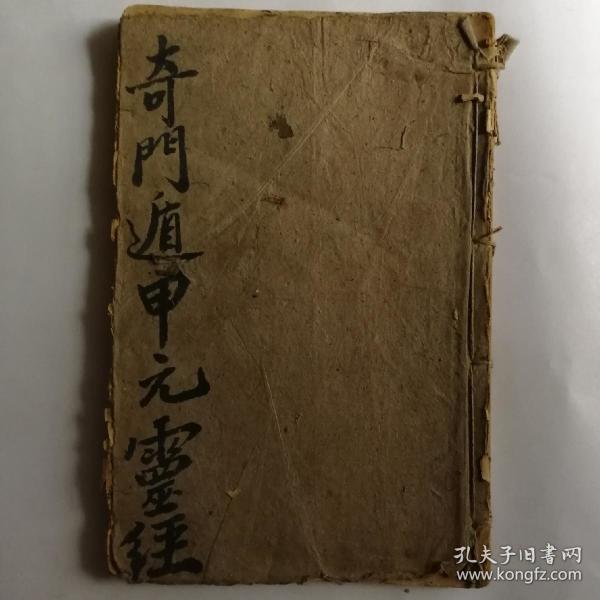 奇門遁甲元靈経
孔夫子旧書网
www.kongfz.com